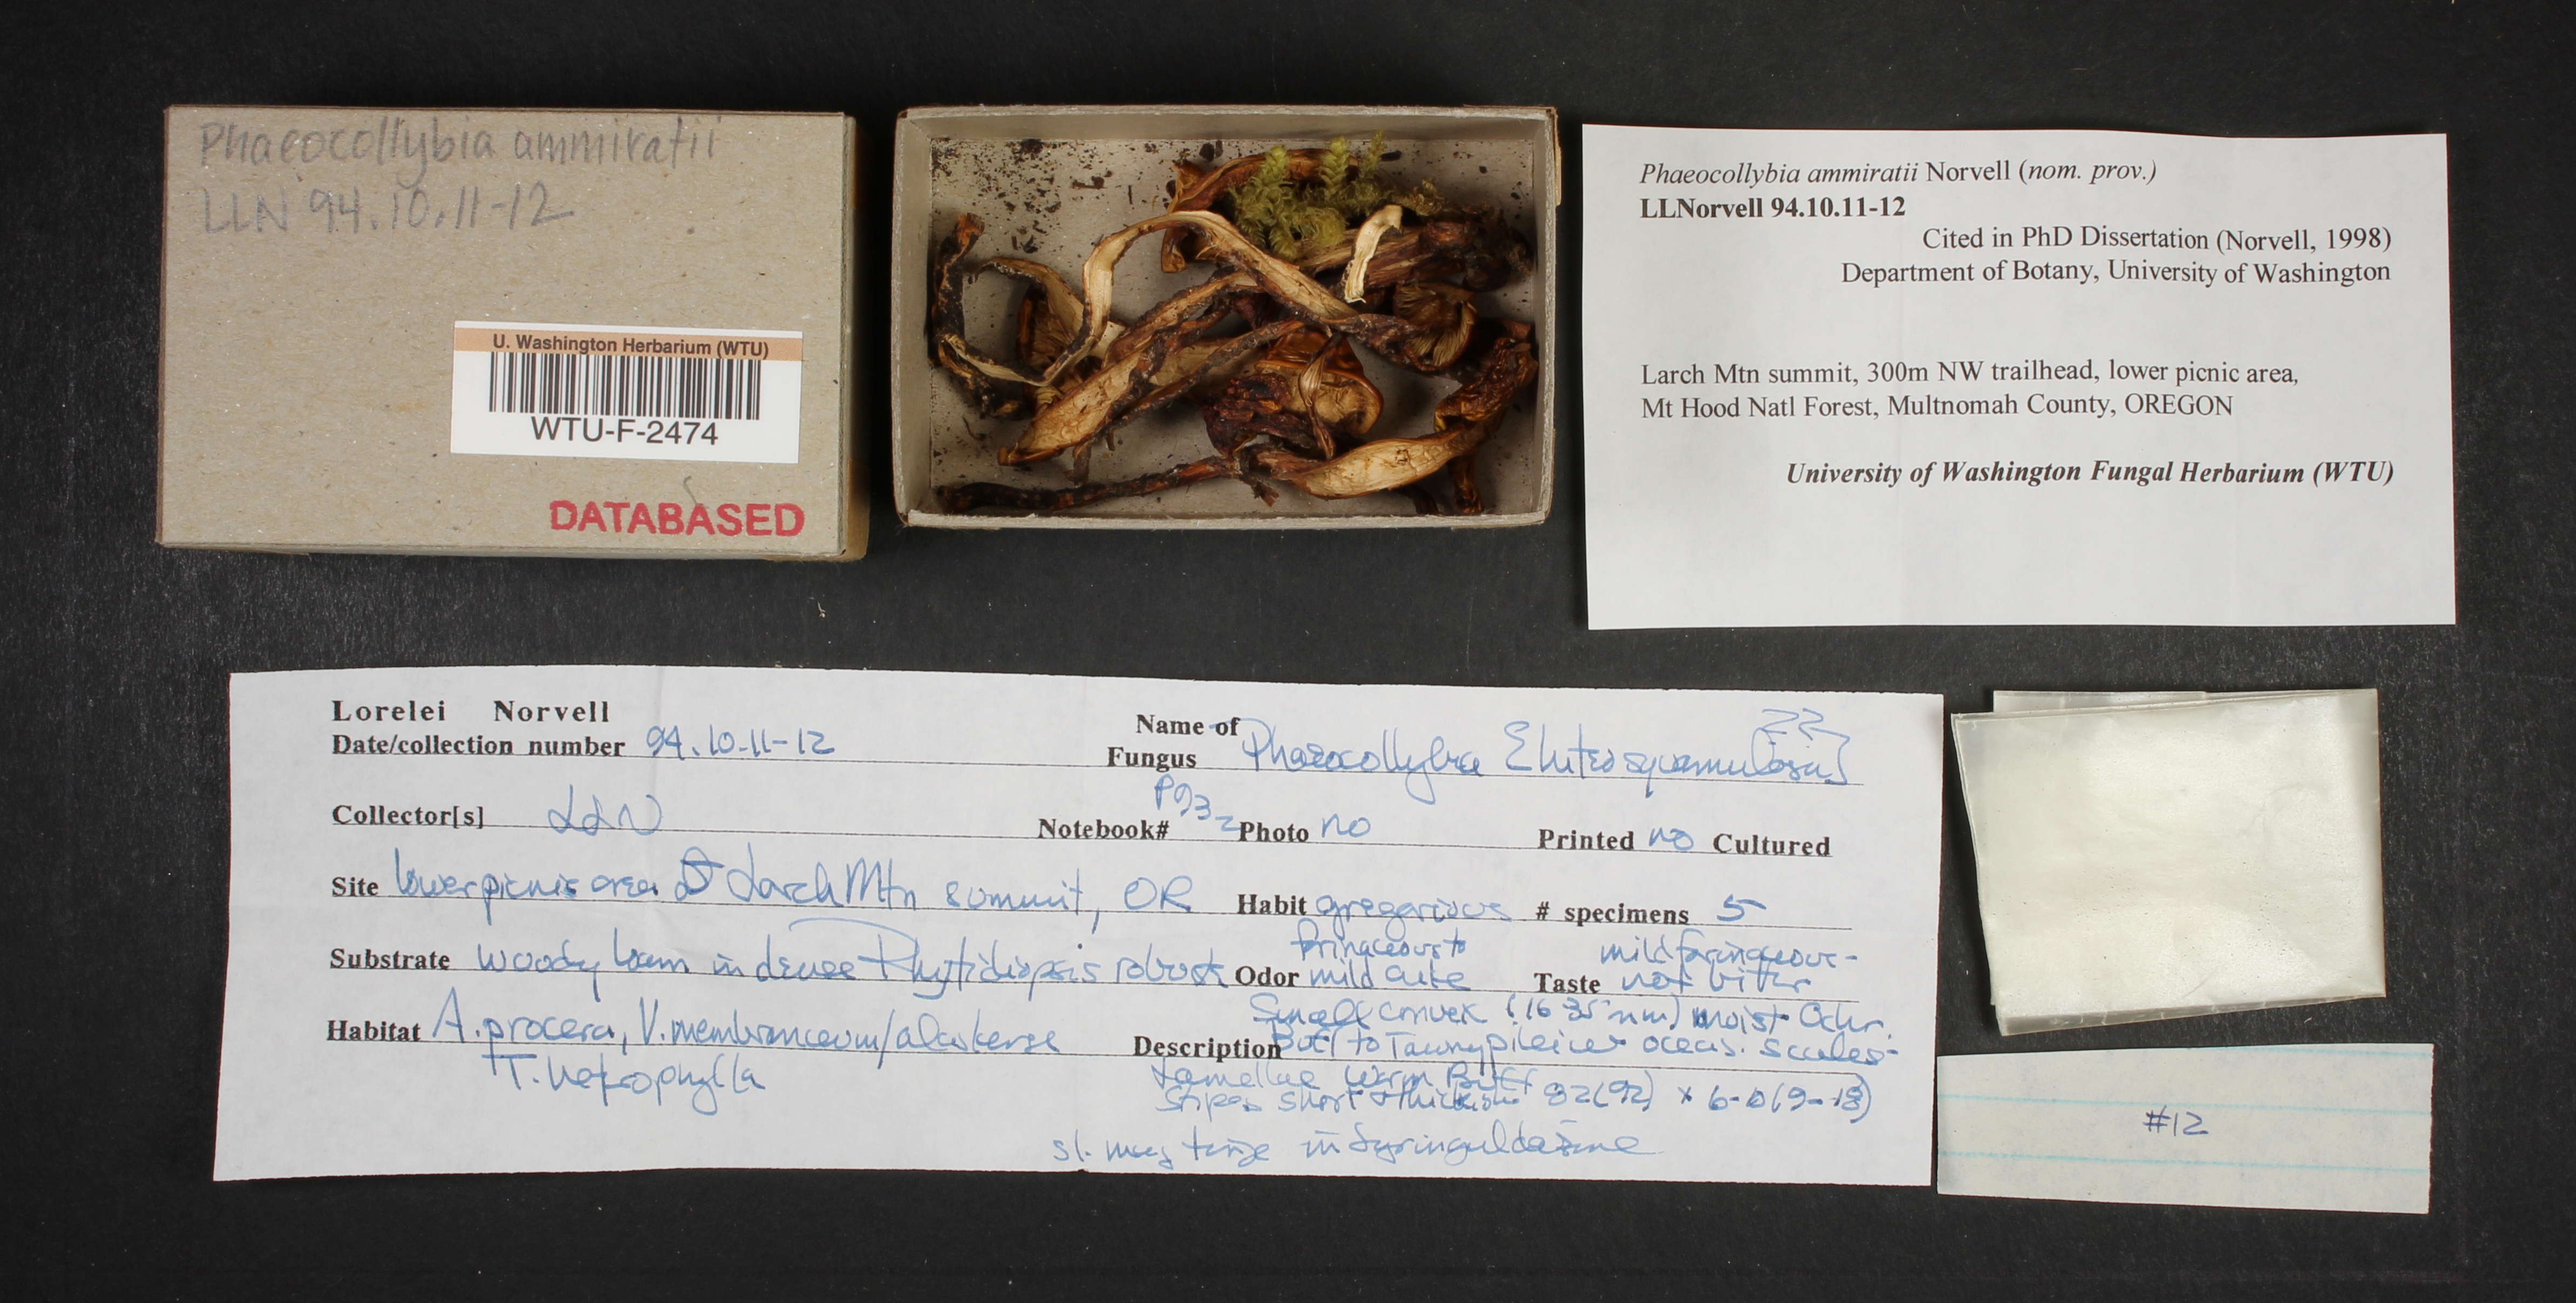 Phaeocollybia ammiratii
LLN 94.10.11-12
U. Washington Herbarium (WTU)
WTU-F-2474
DATABASED
Phaeocollybia ammiratii Norvell (nom. prov.)
LLNorvell 94.10.11-12
Cited in PhD Dissertation (Norvell, 1998)
Department of Botany, University of Washington
Larch Mtn summit, 300m NW trailhead, lower picnic area,
Mt Hood Natl Forest, Multnomah County, OREGON
University of Washington Fungal Herbarium (WTU)
Lorelei Norvell
Date/collection number 94.10-11-12
Name of Fungus Phaeocollybia
Collector[s] LLN
Notebook# Photo no Printed no Cultured
Site lower picnic area Larch Mtn summit, OR
Habit gregarious # specimens 5
Substrate woody loam in dense Rhytidiopsis robust
Odor farinaceous to mild
Taste mild farinaceous - not bitter
Habitat A. procera, V. membranaceum/alaskense
T. heterophylla
Description Small convex moist Ochr.
Buff to Tawny pilei w occas. scales-
Lamellae Warm Buff
Stipes short 82(92) x
sl. in Syringaldazine
#12